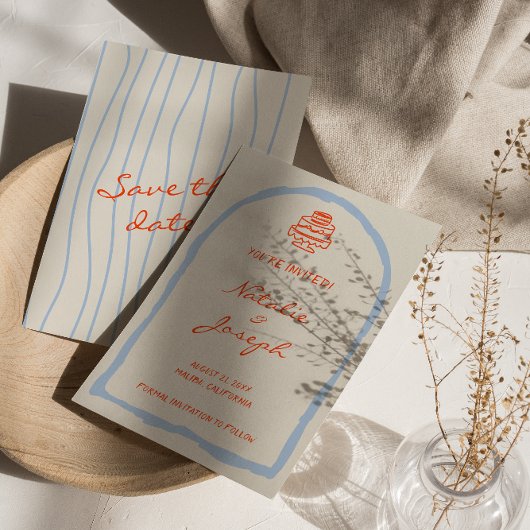 Save the
date
YOU'RE INVITED!
Natalie
&
Joseph
AUGUST 21, 20XX
MALIBU, CALIFORNIA
FORMAL INVITATION TO FOLLOW